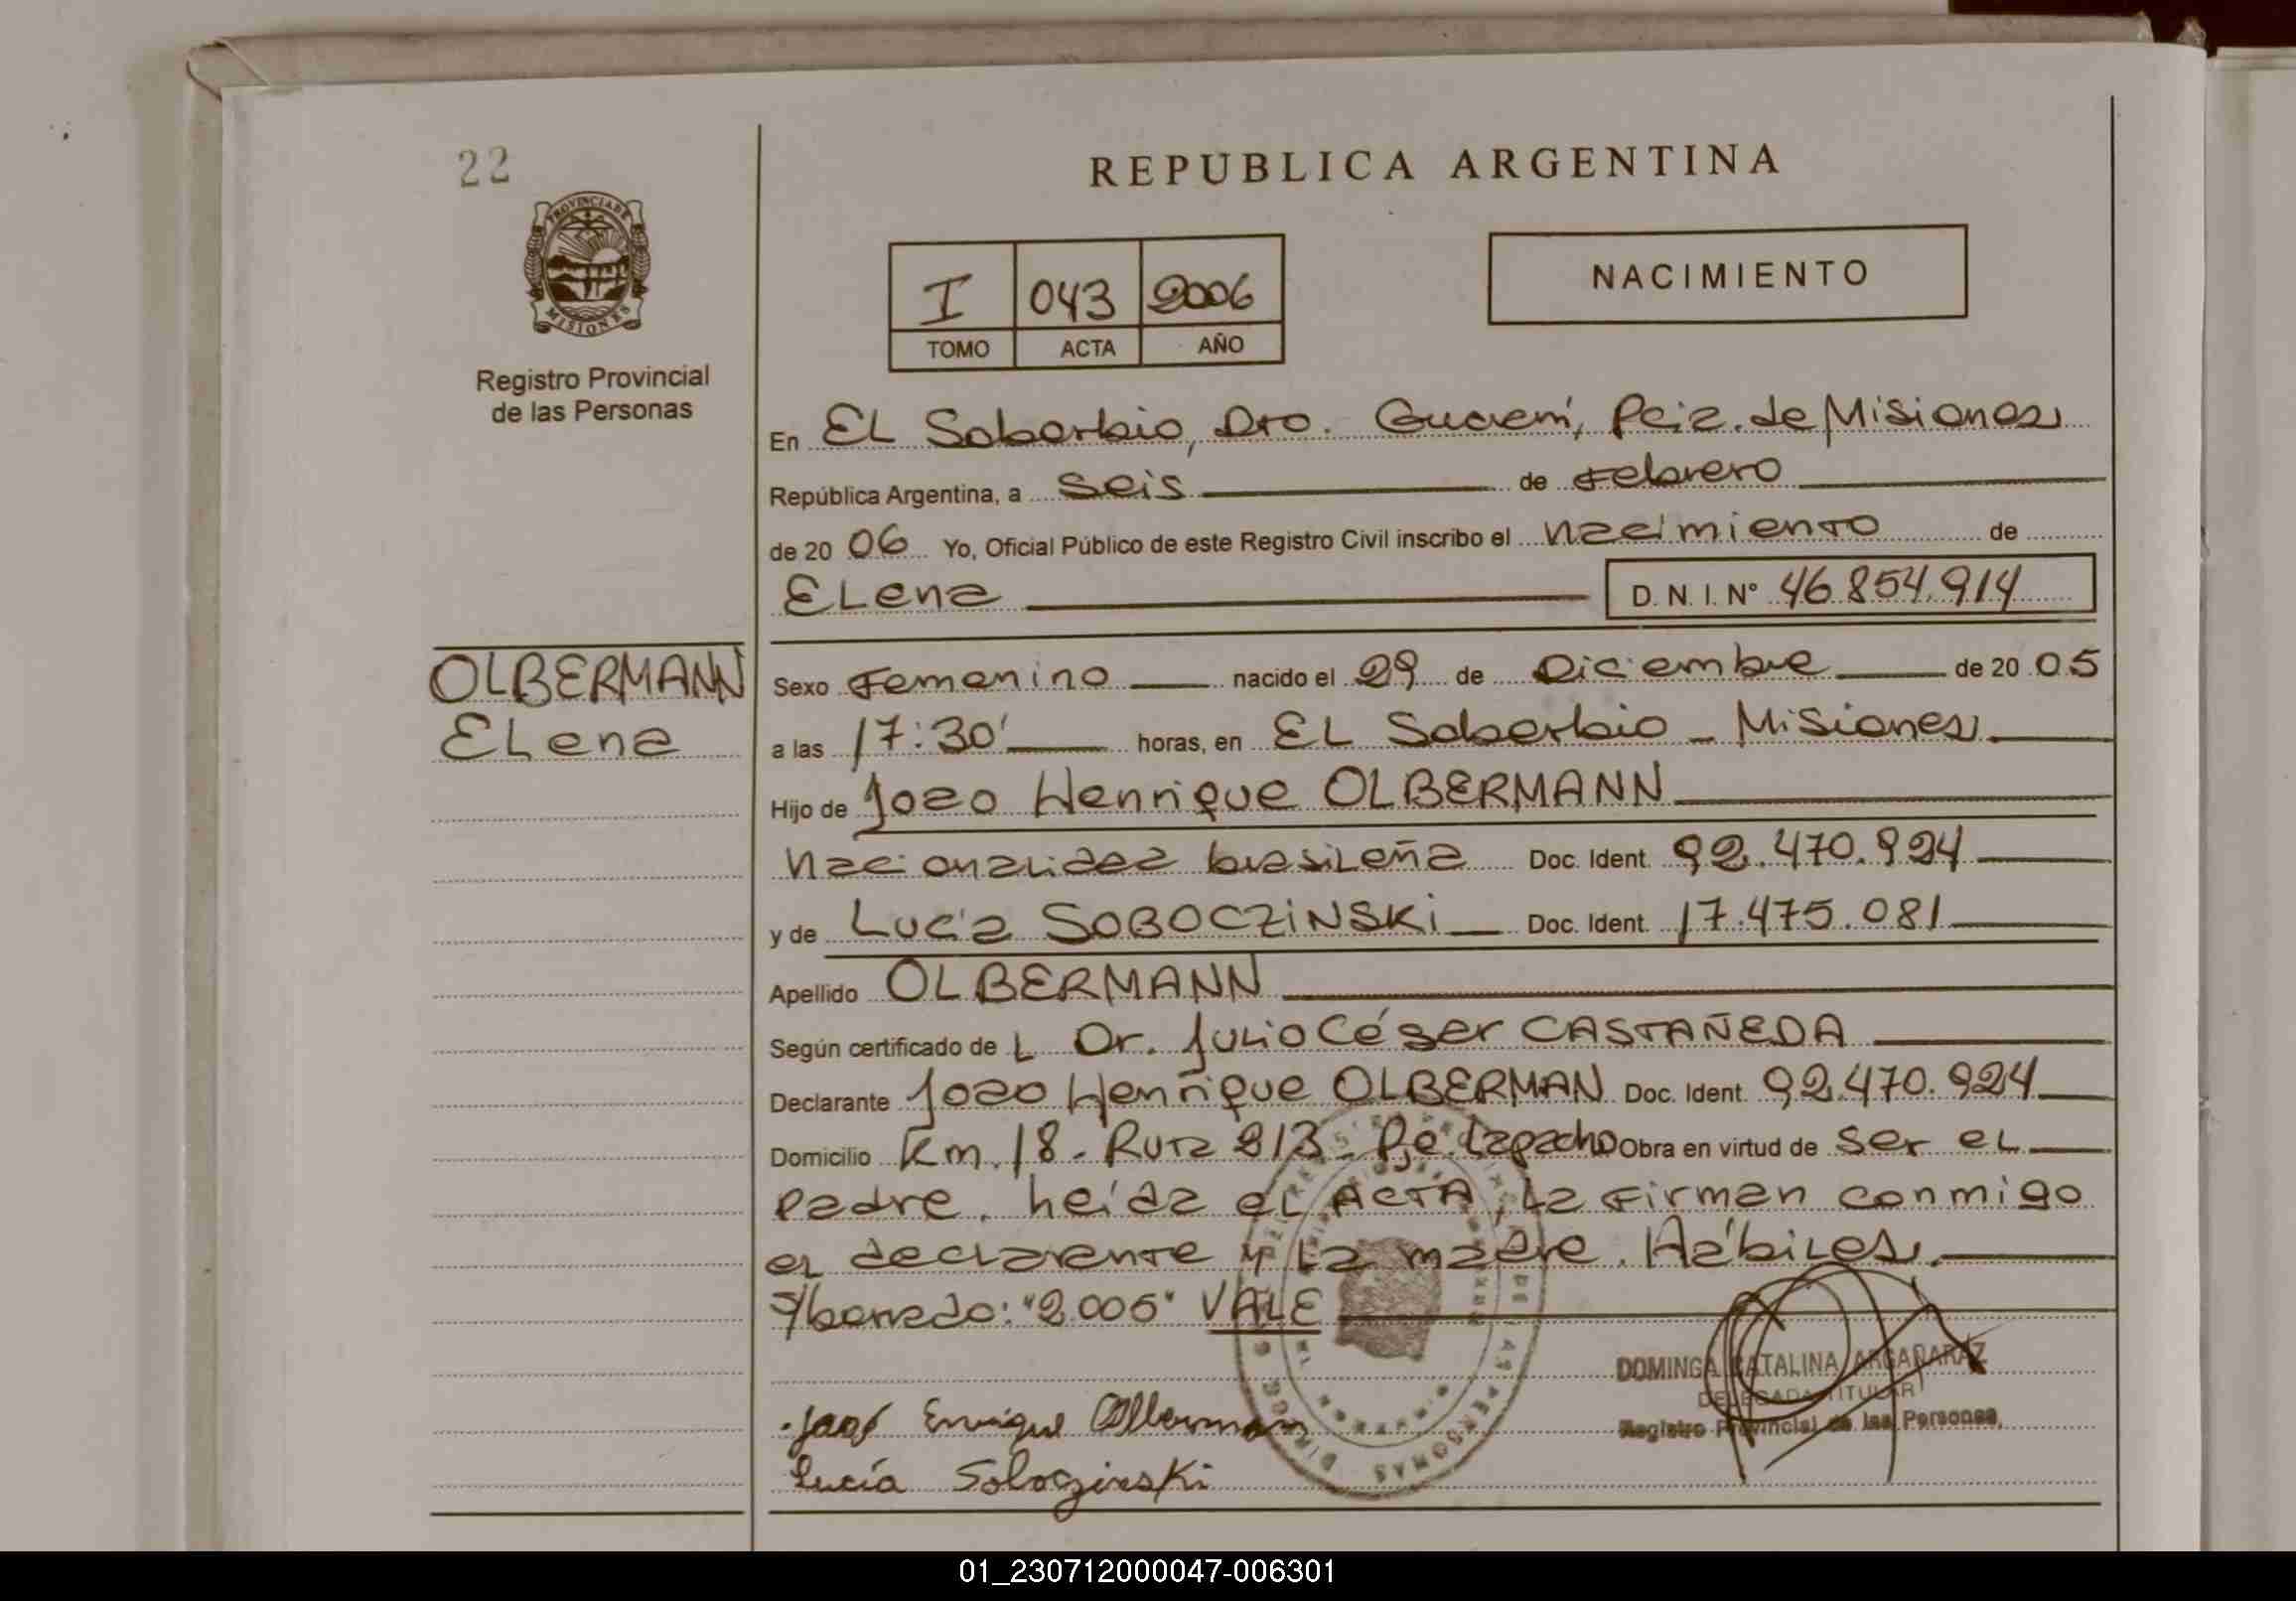 22
REPUBLICA ARGENTINA
PROVINCIA DE
MISIONES
I 043 2006
TOMO ACTA AÑO
NACIMIENTO
Registro Provincial
de las Personas
En EL Soberbio, Dto. Guaraní, Pcia. de Misiones
República Argentina, a seis de Febrero
de 20 06 Yo, Oficial Público de este Registro Civil inscribo el nacimiento de
ELena D.N.I. Nº 46.854.914
OLBERMANN
ELena
Sexo Femenino nacido el 29 de Diciembre de 20 05
a las 17:30' horas, en EL Soberbio - Misiones
Hijo de Joao Henrique OLBERMANN
nacionalidad brasileña Doc. Ident. 92.470.924
y de Lucía SOBOCZINSKi Doc. Ident. 17.475.081
Apellido OLBERMANN
Según certificado de L Dr. Julio César CASTAÑEDA
Declarante Joao Henrique OLBERMAN Doc. Ident. 92.470.924
Domicilio Km. 18 - Ruta 213 - Pje. Lapacho Obra en virtud de ser el
padre. Leída el ACTA, la firman conmigo
el declarante y la madre. Hábiles.
S/borrado: "2.005" VALE
DOMINGA CATALINA ARGAÑARAZ
DELEGADA TITULAR
Registro Provincial de las Personas
Enrique Olberman
Lucía Soboczinski
01_230712000047-006301